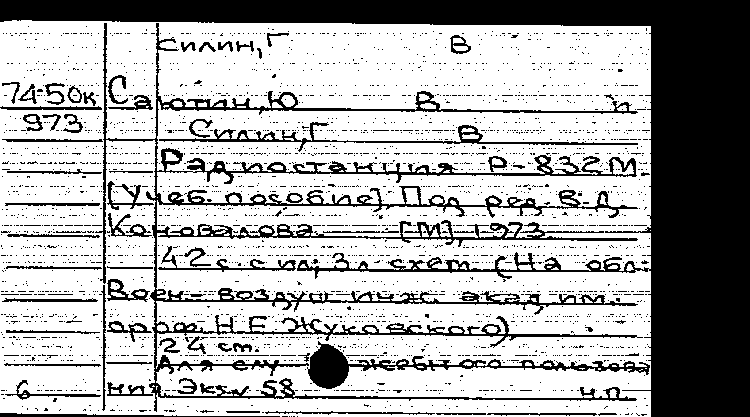 Силин, Г В
74-50к Саютин, Ю В п
973 Силин, Г В
Радиостанция Р-832М.
[Учеб. пособие]. Под ред. В.Д.
Коновалова. [М], 1973.
42 с. с ил; 3 л. схем. (На обл.:
Воен.-воздуш. инж. акад. им.
проф. Н.Е. Жуковского).
24 см.
Для служебного пользова
6 ния. Экз.№ 58 н.п.